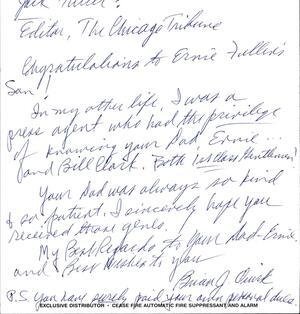 Jack Fuller:
Editor, The Chicago Tribune
Congratulations to Ernie Fuller's
Son!!
In my other life, I was a
press agent who had the privilege
of knowing your Dad, Ernie...
and Bill Clark. Both 1st Class Gentlemen!
Your Dad was always so kind
& so patient. I sincerely hope you
received those genes.
My Best Regards to Your Dad-Ernie
and Best Wishes to you
Brian J.
P.S. You have surely paid your own personal dues.
EXCLUSIVE DISTRIBUTOR - CEASE FIRE AUTOMATIC FIRE SUPPRESSANT AND ALARM